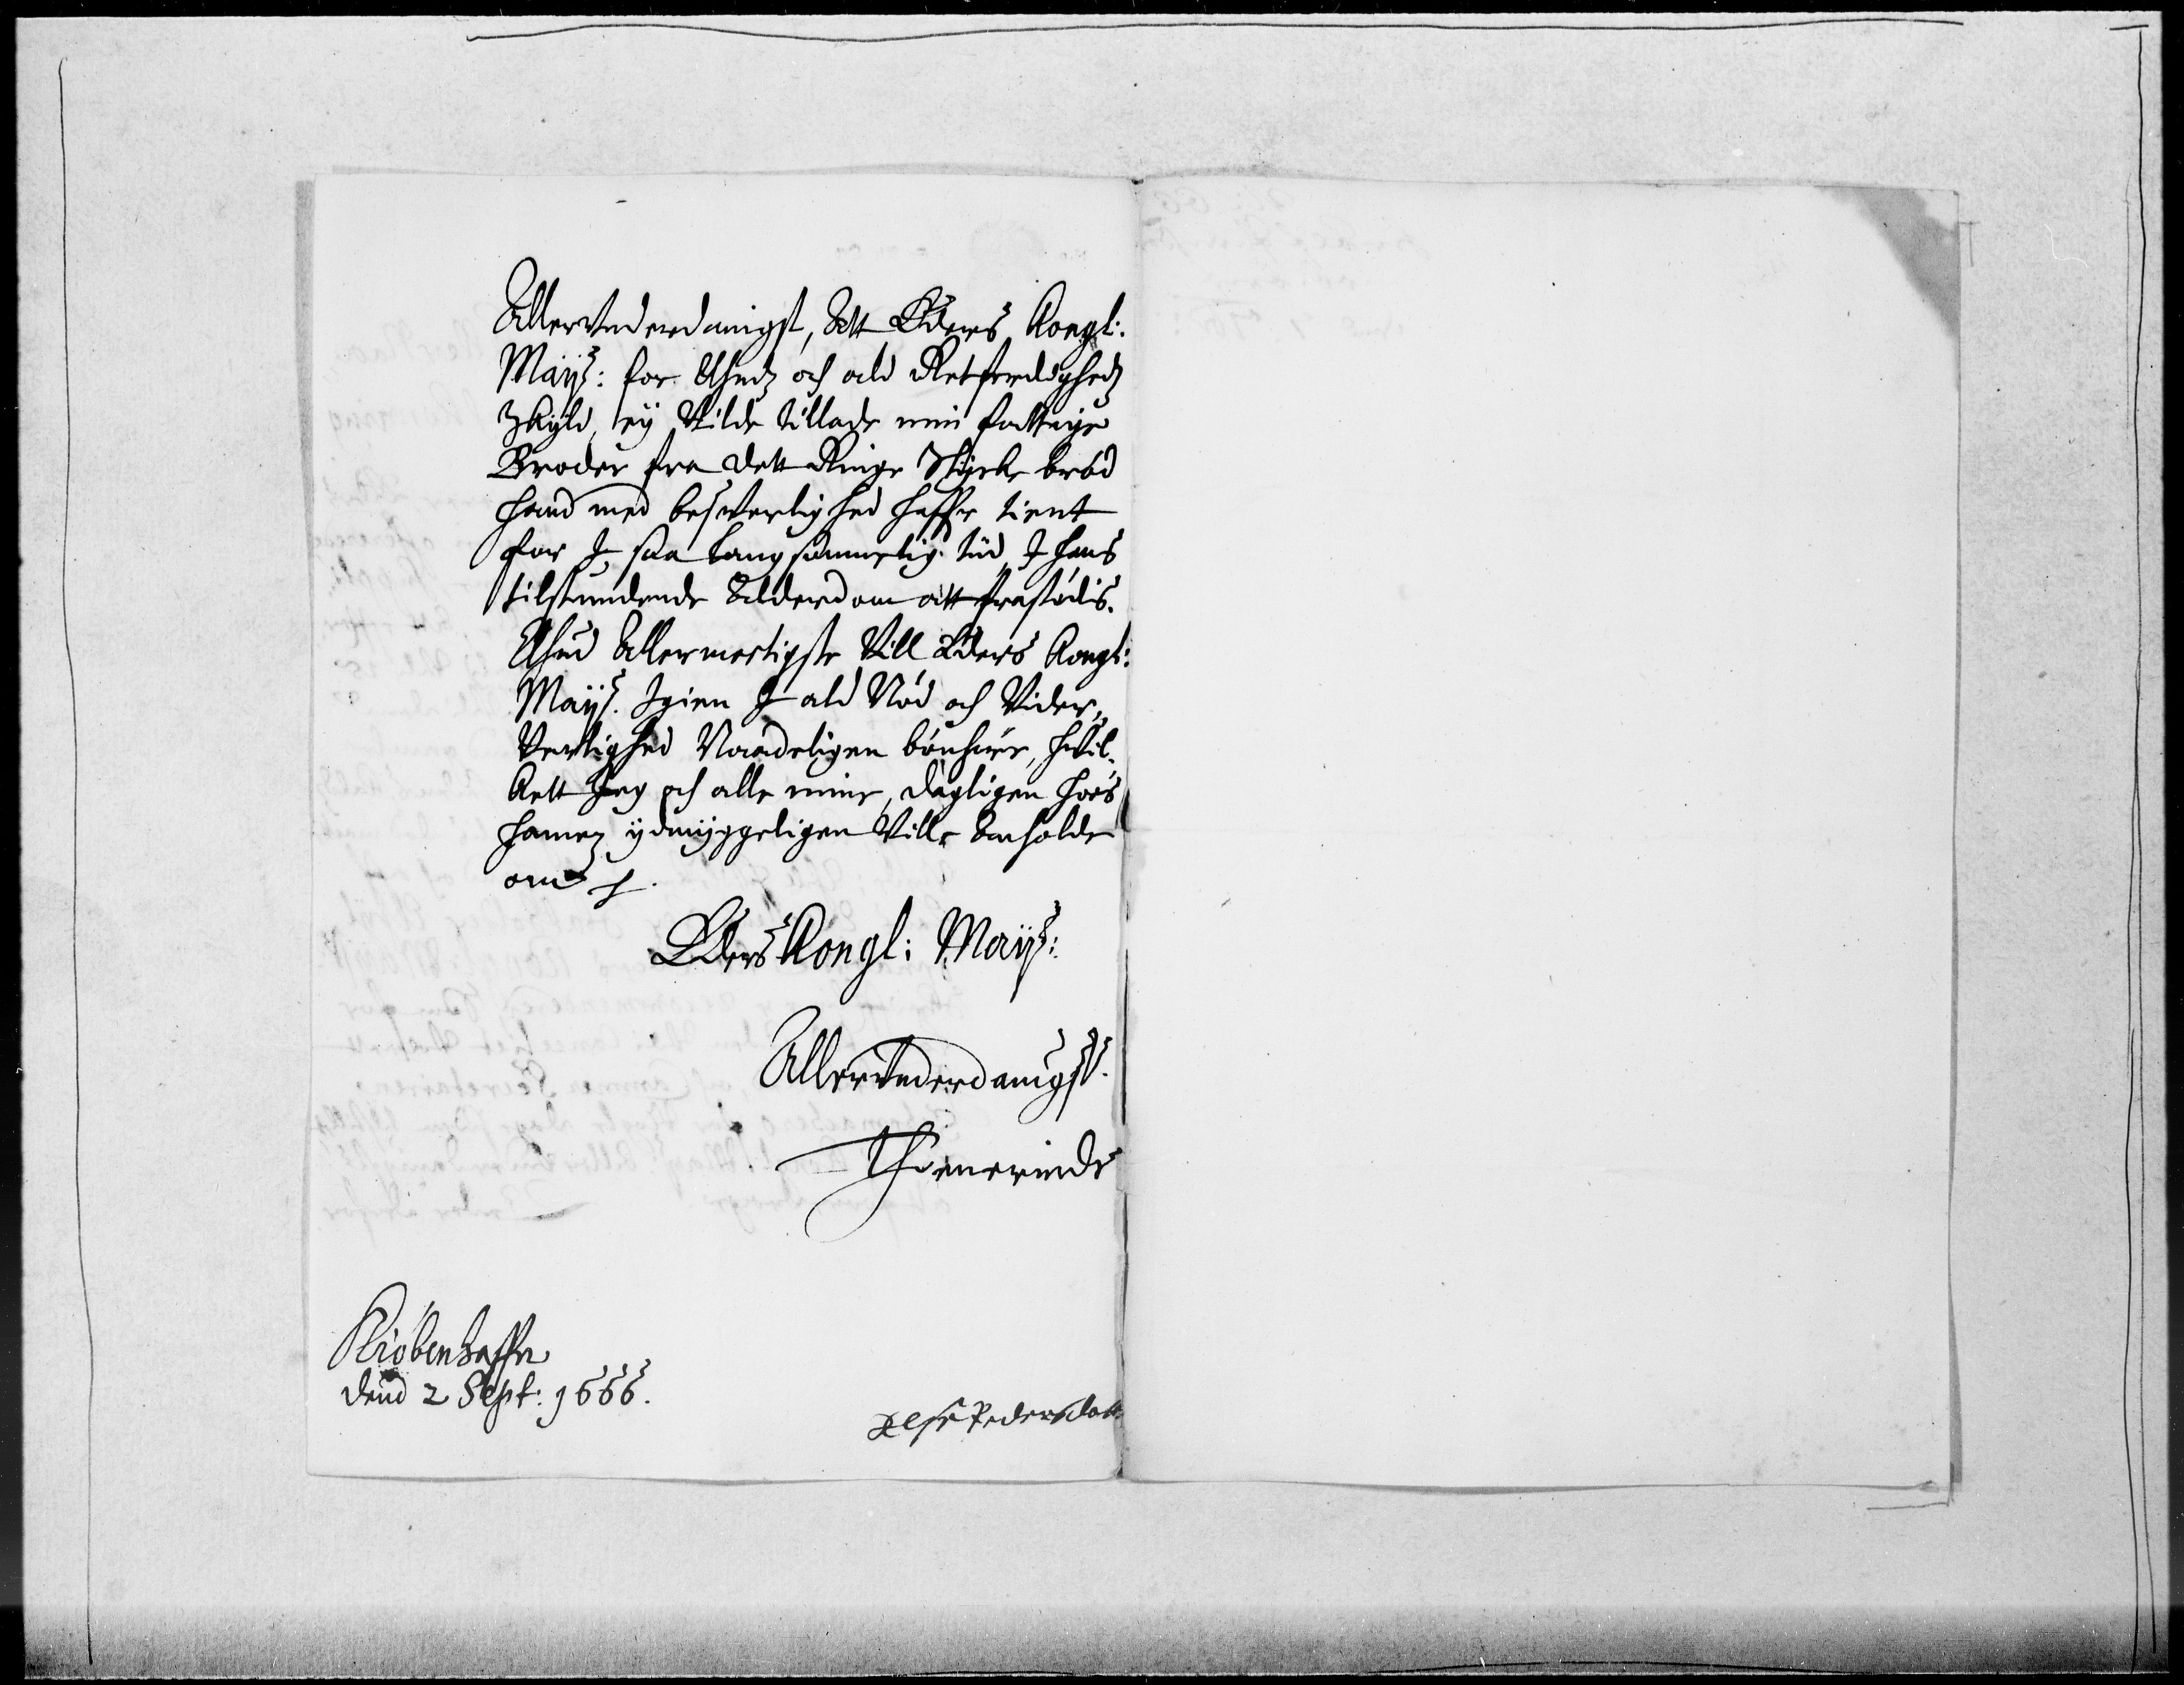 Allervnderdanigst, Att Eders Kongl:
Mayst: for Gudz och ald Retferdigheds
Skyld, ey Vilde tillade min fattige
Broder fra dett Ringe Stycke brød
hand med besverlighed haffr tient
for J saa langsommelig tiid, J hans
tilstundende Alderdom att frastødis.
Gud Allermectigste Vill Eders Kongl:
Mayst. Jgien J ald Nød och Vider¬
Vertighed Naadeligen bønhøre, huil¬
kett Jeg och alle mine, dagligen hoes
hannem ydmyggeligen Ville Anholde
om
Eders Kongl: Mayst:
Allervnderdanigst.
Thienerinde
Kiøbenhaffn
dend 2 Sept: 1666.
Else Pedersdatt